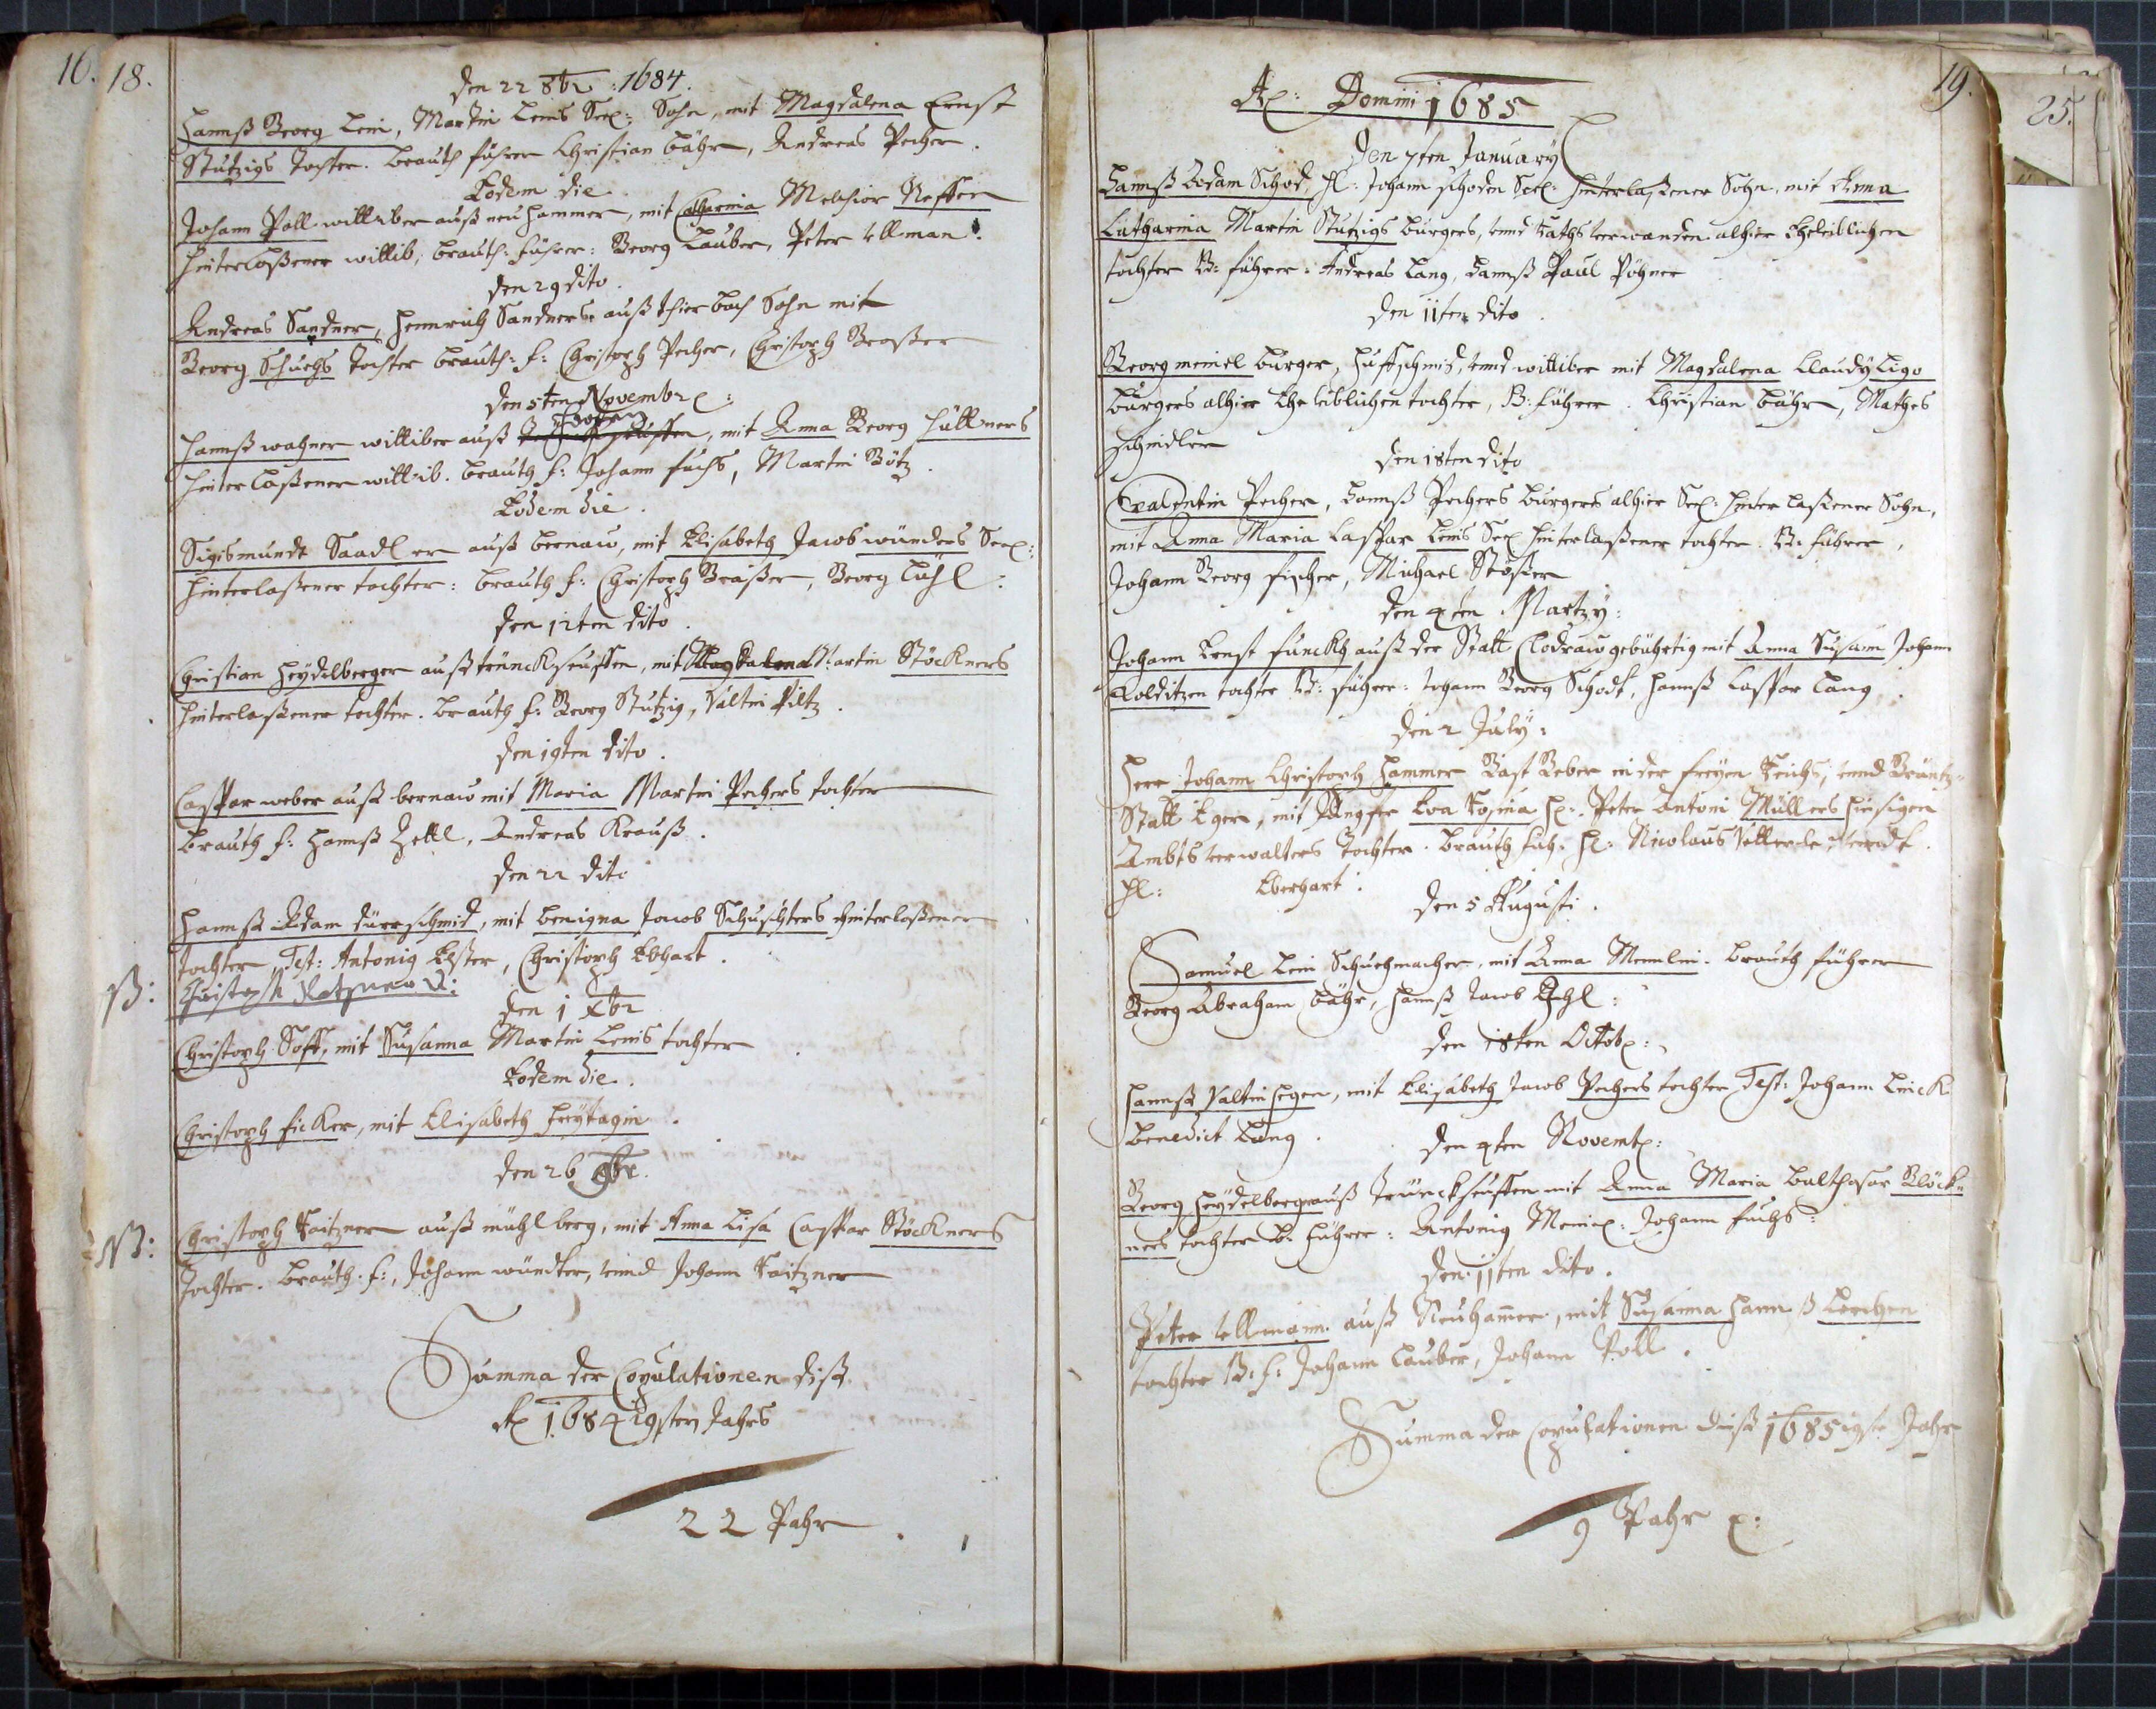 16. 18.
den 22 8br: 1684.
Hannß Georg Lein, Martin Leins Seel: Sohn, mit Magdalena Ernst
Stutzigs Tochter. brauth führer Christian bähr, Andreas Pecher.
Eodem die.
Johann Poll wittiber auß neuhammer, mit Catharina Melchior Neffen
hinterlaßener wittib, brauth: führer: Georg Lauber, Peter Ullman.
den 29 dito.
Andreas Sandner, Heinrich Sandners auß thierbach Sohn mit
Georg Schuchs Tochter brauth: f: Christoph Pecher, Christoph Graßer
den 5ten Novembr:
Hannß wagner wittiber auß, mit Anna Georg Hüttners
hinterlaßener wittib. brauth f: Johann fuchs, Martin Götz.
Eodem die.
Sigismundt Saadler auß bernaw, mit Elisabeth Jacob wünders Seel:
hinterlaßener tochter: brauth f: Christoph Graßer, Georg Lühl:
den 12ten dito.
Christian Heydelberger auß trünckseuffen, mit Magdalena Martin Stöckners
hinterlaßener tochter. brauth f: Georg Stutzig, Valtin Piltz.
den 19ten dito.
Caspar weber auß bernaw mit Maria Martin Pechers tochter
brauth f: Hannß Zettl, Andreas Krauß.
den 22 dito
Hannß Adam dürrschmid, mit benigna Jacob Schuchters hinterlaßener
Tochter, Test: Antonig Elster, Christoph Ebhart.
ß: Christoph
den 1 Xbr
Christoph Toff, mit Susanna Martin Leins tochter
Eodem die.
Christoph ficker, mit Elisabeth freytagin.
den 26
NB: Christoph Raitzner auß mühlberg, mit Anna Lisa Caspar Stöckners
Tochter. brauth. f:, Johann wündter, vnnd Johann Raitzner
Summa der Copulationen diß
Ao 1684igsten Jahrs
22 Pahr.
19.
25.
Ao: Domini 1685
Den 7ten January
Hannß Adam Schod, H: Johann schoden Seel: hinterlaßener Sohn, mit Anna
Catharina Martin Stutzigs bürgers, vnnd Raths verwanden alhier Eheleiblichen
tochter B: führer: Andreas Lang, Hannß Paul Pöhner
den 11ten dito.
Georg meinel burger, Huffschmid, vnnd wittiber mit Magdalena Claudy Ligo
bürgers alhier Eheleiblichen tochter, B: führer. Christian bähr, Mathes
schindler
den 18ten dito
Valentin Pecher, Hannß Pechers bürgers alhier Seel: hinterlaßener Sohn,
mit Anna Maria Caspar Leins Seel hinterlaßener tochter. B: führer,
Johann Georg fischer, Michael Stößer
den 4ten Martzy:
Johann Ernst funckh auß der Statt Clodraw gebührtig mit Anna Susann Johann
Colditzen tochter B: führer: Johann Georg Schodt, Hannß Caspar Lang.
den 2 July:
Herr Johann Christoph Hammer Gast Geber in der freyen Reichs, vnnd Gräntz-
Statt Eger, mit Jungfer Eva Rosina H: Peter Antoni Müllers hiesigen
Ambts verwalters Tochter. brauth füh: H: Nicolaus
H: Eberhart.
den 5 Augusti.
Samuel Lein Schuchmacher, mit Anna Memlin. brauth führer
Georg Abraham bähr, Hannß Jacob Lühl:
den 18ten Octob:
Hannß Valtin Heger, mit Elisabeth Jacob Pechers tochter Test: Johann Linck
benedict Lang.
den 4ten Novemb:
Georg Heydelberger auß Trünckseuffen mit Anna Maria balthasar Glöck-
ners tochter b: führer: Antonig Meinl: Johann fuchs:
den 11ten dito.
Peter Ullmann auß Neuhamer, mit Susanna Hannß Lerchen
tochter B: f: Johann Lauber, Johann Poll.
Summa der Copulationen dieß 1685igst Jahr
9 Pahr